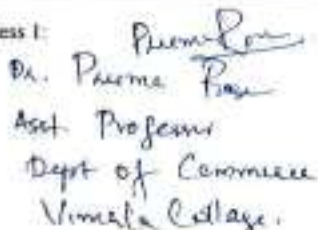 ess 1:
Dr. Preema Rose
Asst. Professor
Dept of Commerce
Vimala College.